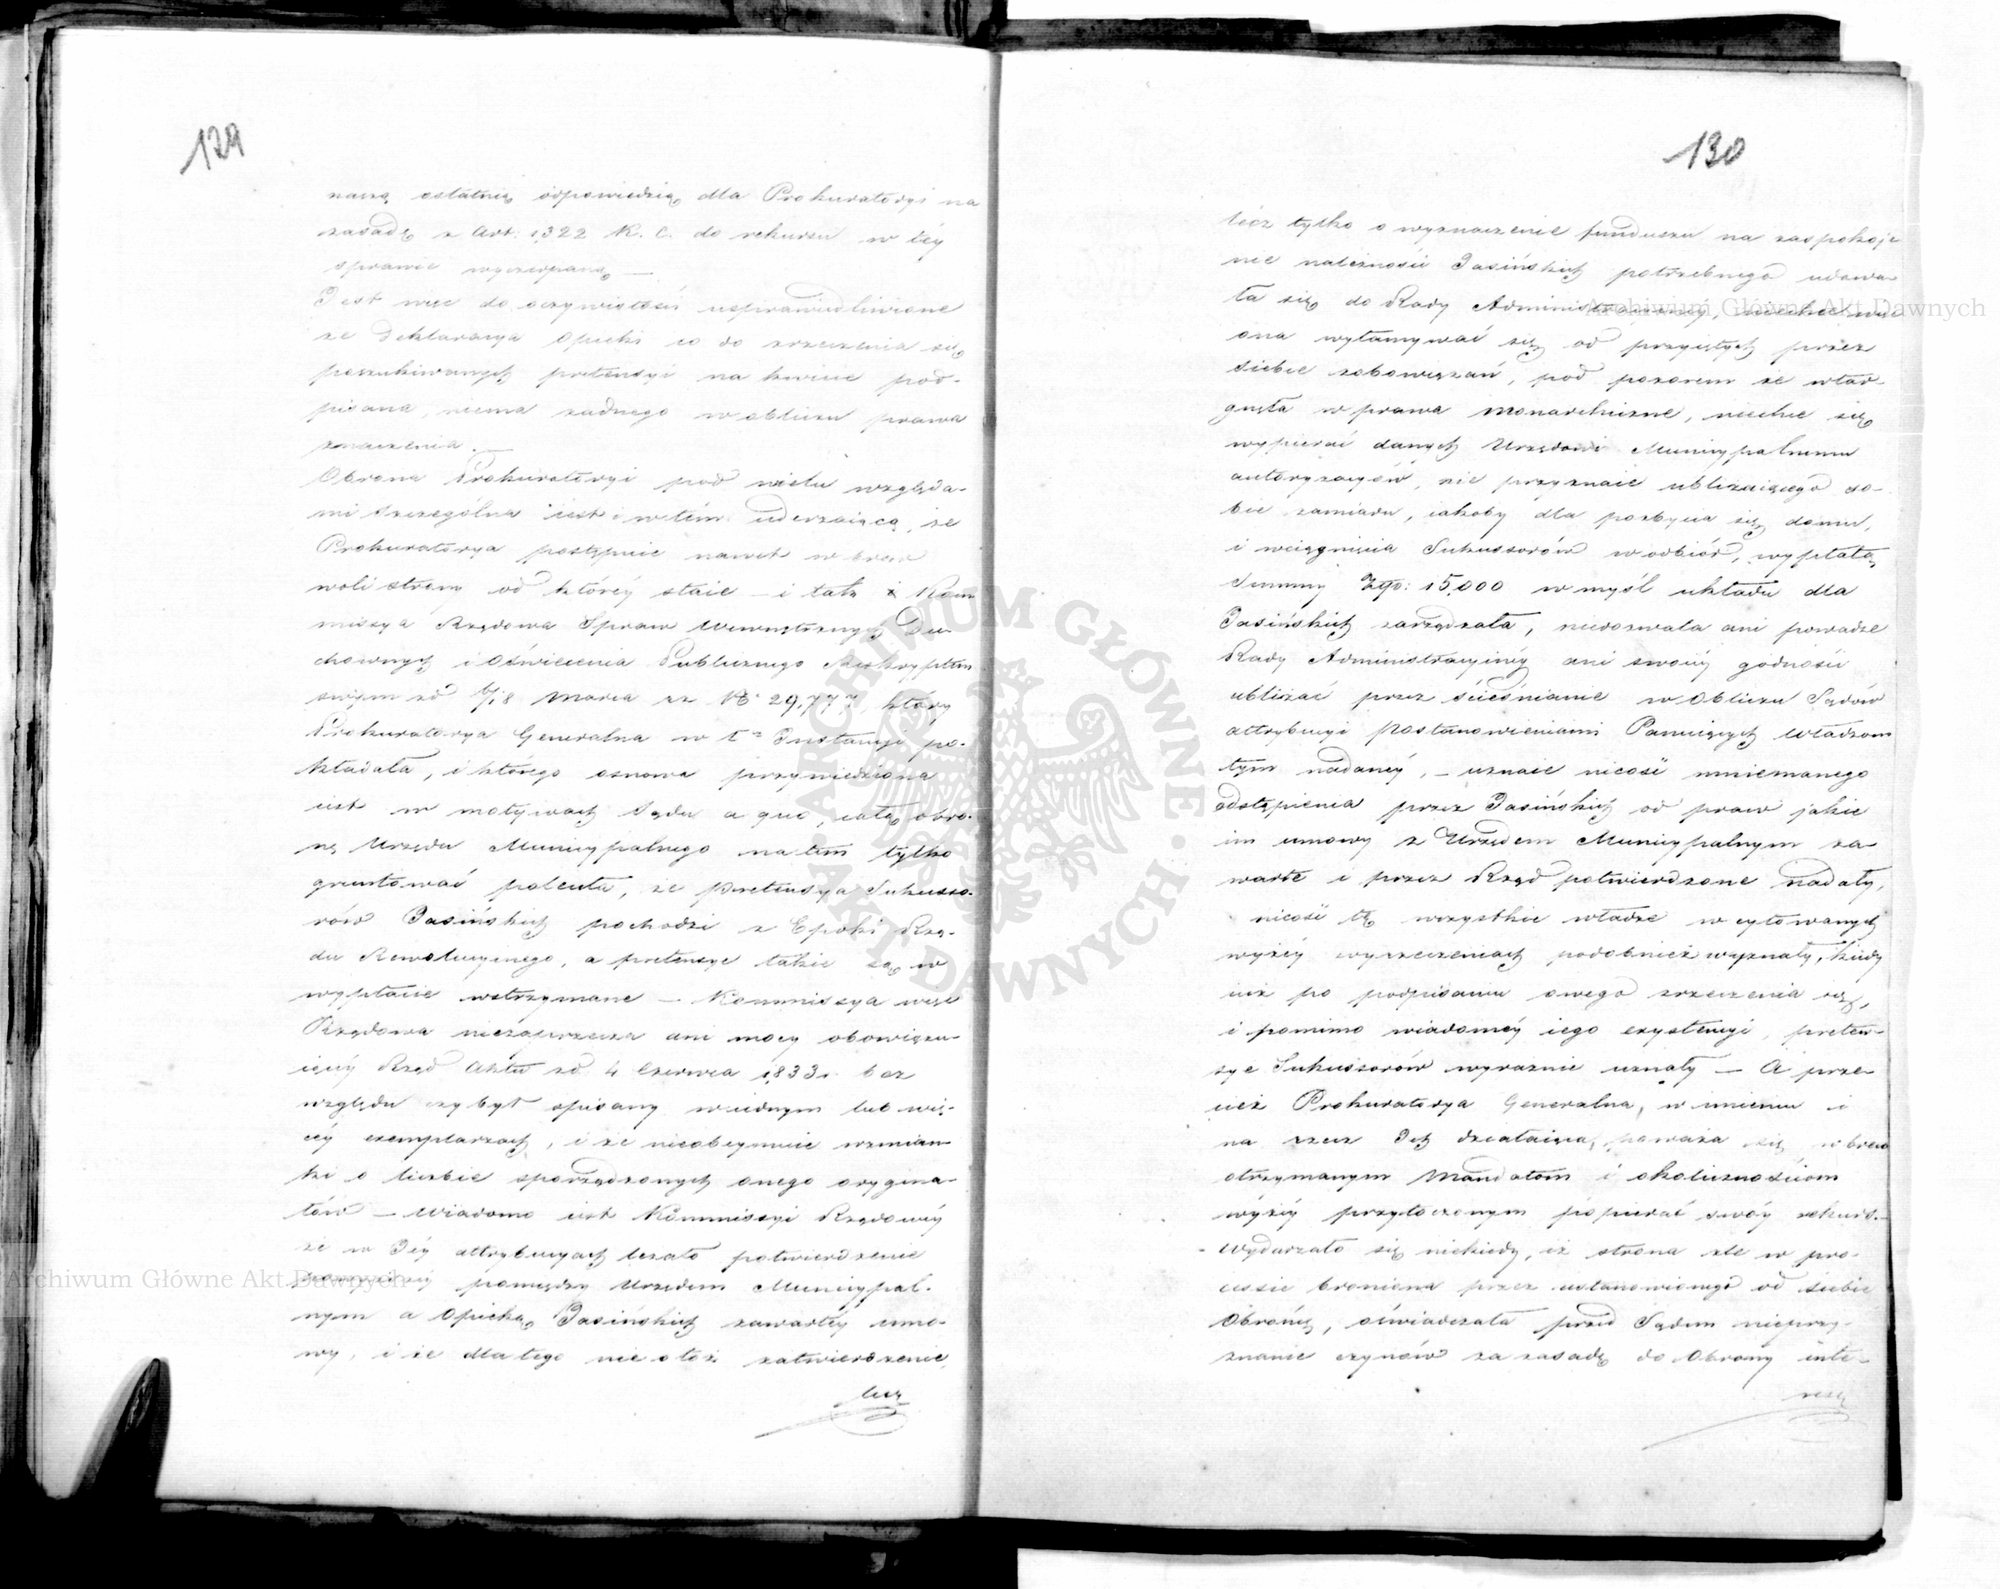 129
naszą ostatnią odpowiedzią dla Prokuratoryi na
zasadę z Art. 1322 K. C. do rekursu w téy
sprawie wyczerpaną —
Jest więc do oczywistości usprawiedliwione
że Deklaracya Opieki co do zrzeczenia się
poszukiwanych pretensyi na kwicie pod-
pisana, niema żadnego w obliczu prawa
znaczenia. —
Obrona Prokuratoryi pod wielu względa-
mi szczególna iest i w tém uderzaiącą, że
Prokuratorya postępuie nawet w brew
woli strony od któréy staie — i tak x Kom
missya Rządowa Spraw Wewnętrznych Du-
chownych i Oświecenia Publicznego Reskryptem
swym zd 6/18 Marca rz No 29,777, który
Prokuratorya Generalna w 1ey Instancyi po-
kładała, i którego osnowa przywiedziona
iest w motywach Sądu a quo, całą obro-
nę Urzędu Municypalnego na tém tylko
gruntować poleciła, że pretensya Sukcesso-
rów Jasińskich pochodzi z Epoki Rzą-
du Rewolucyinego, a pretensye takie są w
wypłacie wstrzymane — Kommissya więc
Rządowa niezaprzecza ani mocy obowiązu-
iącéy Rząd Aktu zd. 4 Czerwca 1833r. bez
względu czy był spisany w iednym lub wię-
céy exemplarzach, i że nieobeymuie wzmian-
ki o liczbie sporządzonych onego orygina-
łów — Wiadomo iest Kommissyi Rządowéy
że w Jéy attrybucyach leżało potwierdzenie
pomiędzy Urzędem Municypal-
nym a Opieką Jasińskich zawartéy umo-
wy, i że dla tego nie o téż zatwierdzenie,
lecz
130
lécz tylko o wyznaczenie funduszu na zaspokoje
nie należności Jasińskich potrzebnego udawa-
ła się do Rady Administracyinéy, niechce więc
ona wyłamywać się od przyiętych przez
siebie zobowiązań, pod pozorem że wtar-
gnęła w prawa monarchiczne, niechce się
wypierać danych Urzędowi Municypalnemu
autoryzacyów, nie przyznaie ubliżaiącego so-
bie zamiaru, iakoby dla pozbycia się domu,
i wciągnięcia Sukcessorów w odbiór, wypłatą
Summy Złp: 15,000 w myśl układu dla
Jasińskich zarządzała, niedozwala ani powadze
Rady Administracyinéy ani swoiéy godności
ubliżać przez ścieśnianie w obliczu Sądów
attrybucyi postanowieniami Panuiących władzom
tym nadanéy, — uznaie nicość mniemanego
odstąpienia przez Jasińskich od praw jakie
im umowy z Urzędem Municypalnym za-
warte i przez Rząd potwierdzone nadały,
nicość tę wszystkie władze w cytowanych
wyżéy wyrzeczeniach podobnież wyznały, kiedy
iuż po podpisaniu owego zrzeczenia się,
i pomimo wiadoméy iego exystencyi, preten-
sye Sukcessorów wyraznie uznały — A prze-
cież Prokuratorya Generalna, w imieniu i
na rzecz Ich działaiąca, poważa się w brew
otrzymanym Mandatom i okolicznościom
wyżéy przytoczonym popierać swóy rekurs. —
Wydarzało się niekiedy, iż strona źle w pro-
cessie broniona przez ustanowionego od siebie
Obrońcę, oświadczała przed Sądem nieprzy-
znanie czynów za zasadę do Obrony inte-
ressu